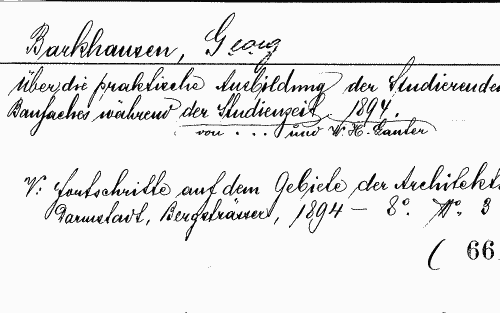 Barkhausen, Georg
Über die praktische Ausbildung der Studierenden
Baufaches während der Studienzeit. 1894.
von ... und W. H. Lauter
V: Fortschritte auf dem Gebiete der Architekt
Darmstadt, Bergsträsser, 1894 – 8°. No. 3
( 66